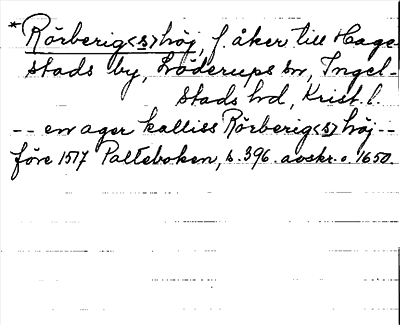 * Rörberig<s>höj, f. åker till Hage-
stads by, Löderups sn, Ingel-
stads hd, Krist. l.
-- en ager kalliss Rörberig<s>höj --
före 1517 Palteboken, s. 396. avskr. o. 1650.